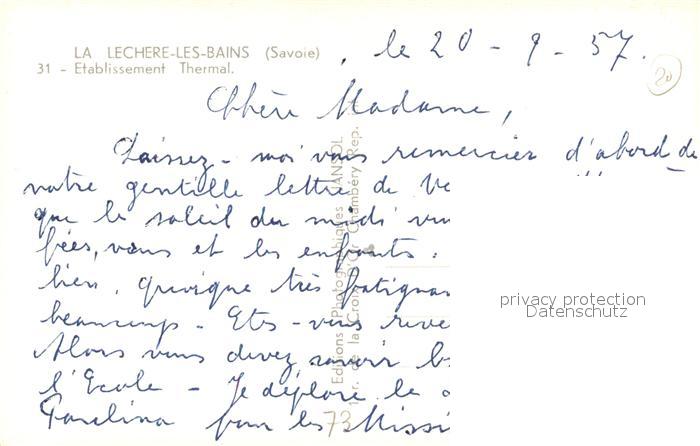 LA LECHERE-LES-BAINS (Savoie)
31 - Etablissement Thermal.
le 20 - 9 - 57.
20
Chère Madame,
Laissez-moi vous remercier d'abord de
votre gentille lettre de
que le soleil du midi
fées, vous et les enfants.
bien, quoique très fatigna
beaucoup. Etes-vous reve
Alors vous devez savoir
l'Ecole - Je déplore le
pour les Missi
73
Editions Photographiques JANSOL
1 er. de la Croix d'Or Chambéry Rep.
privacy protection
Datenschutz